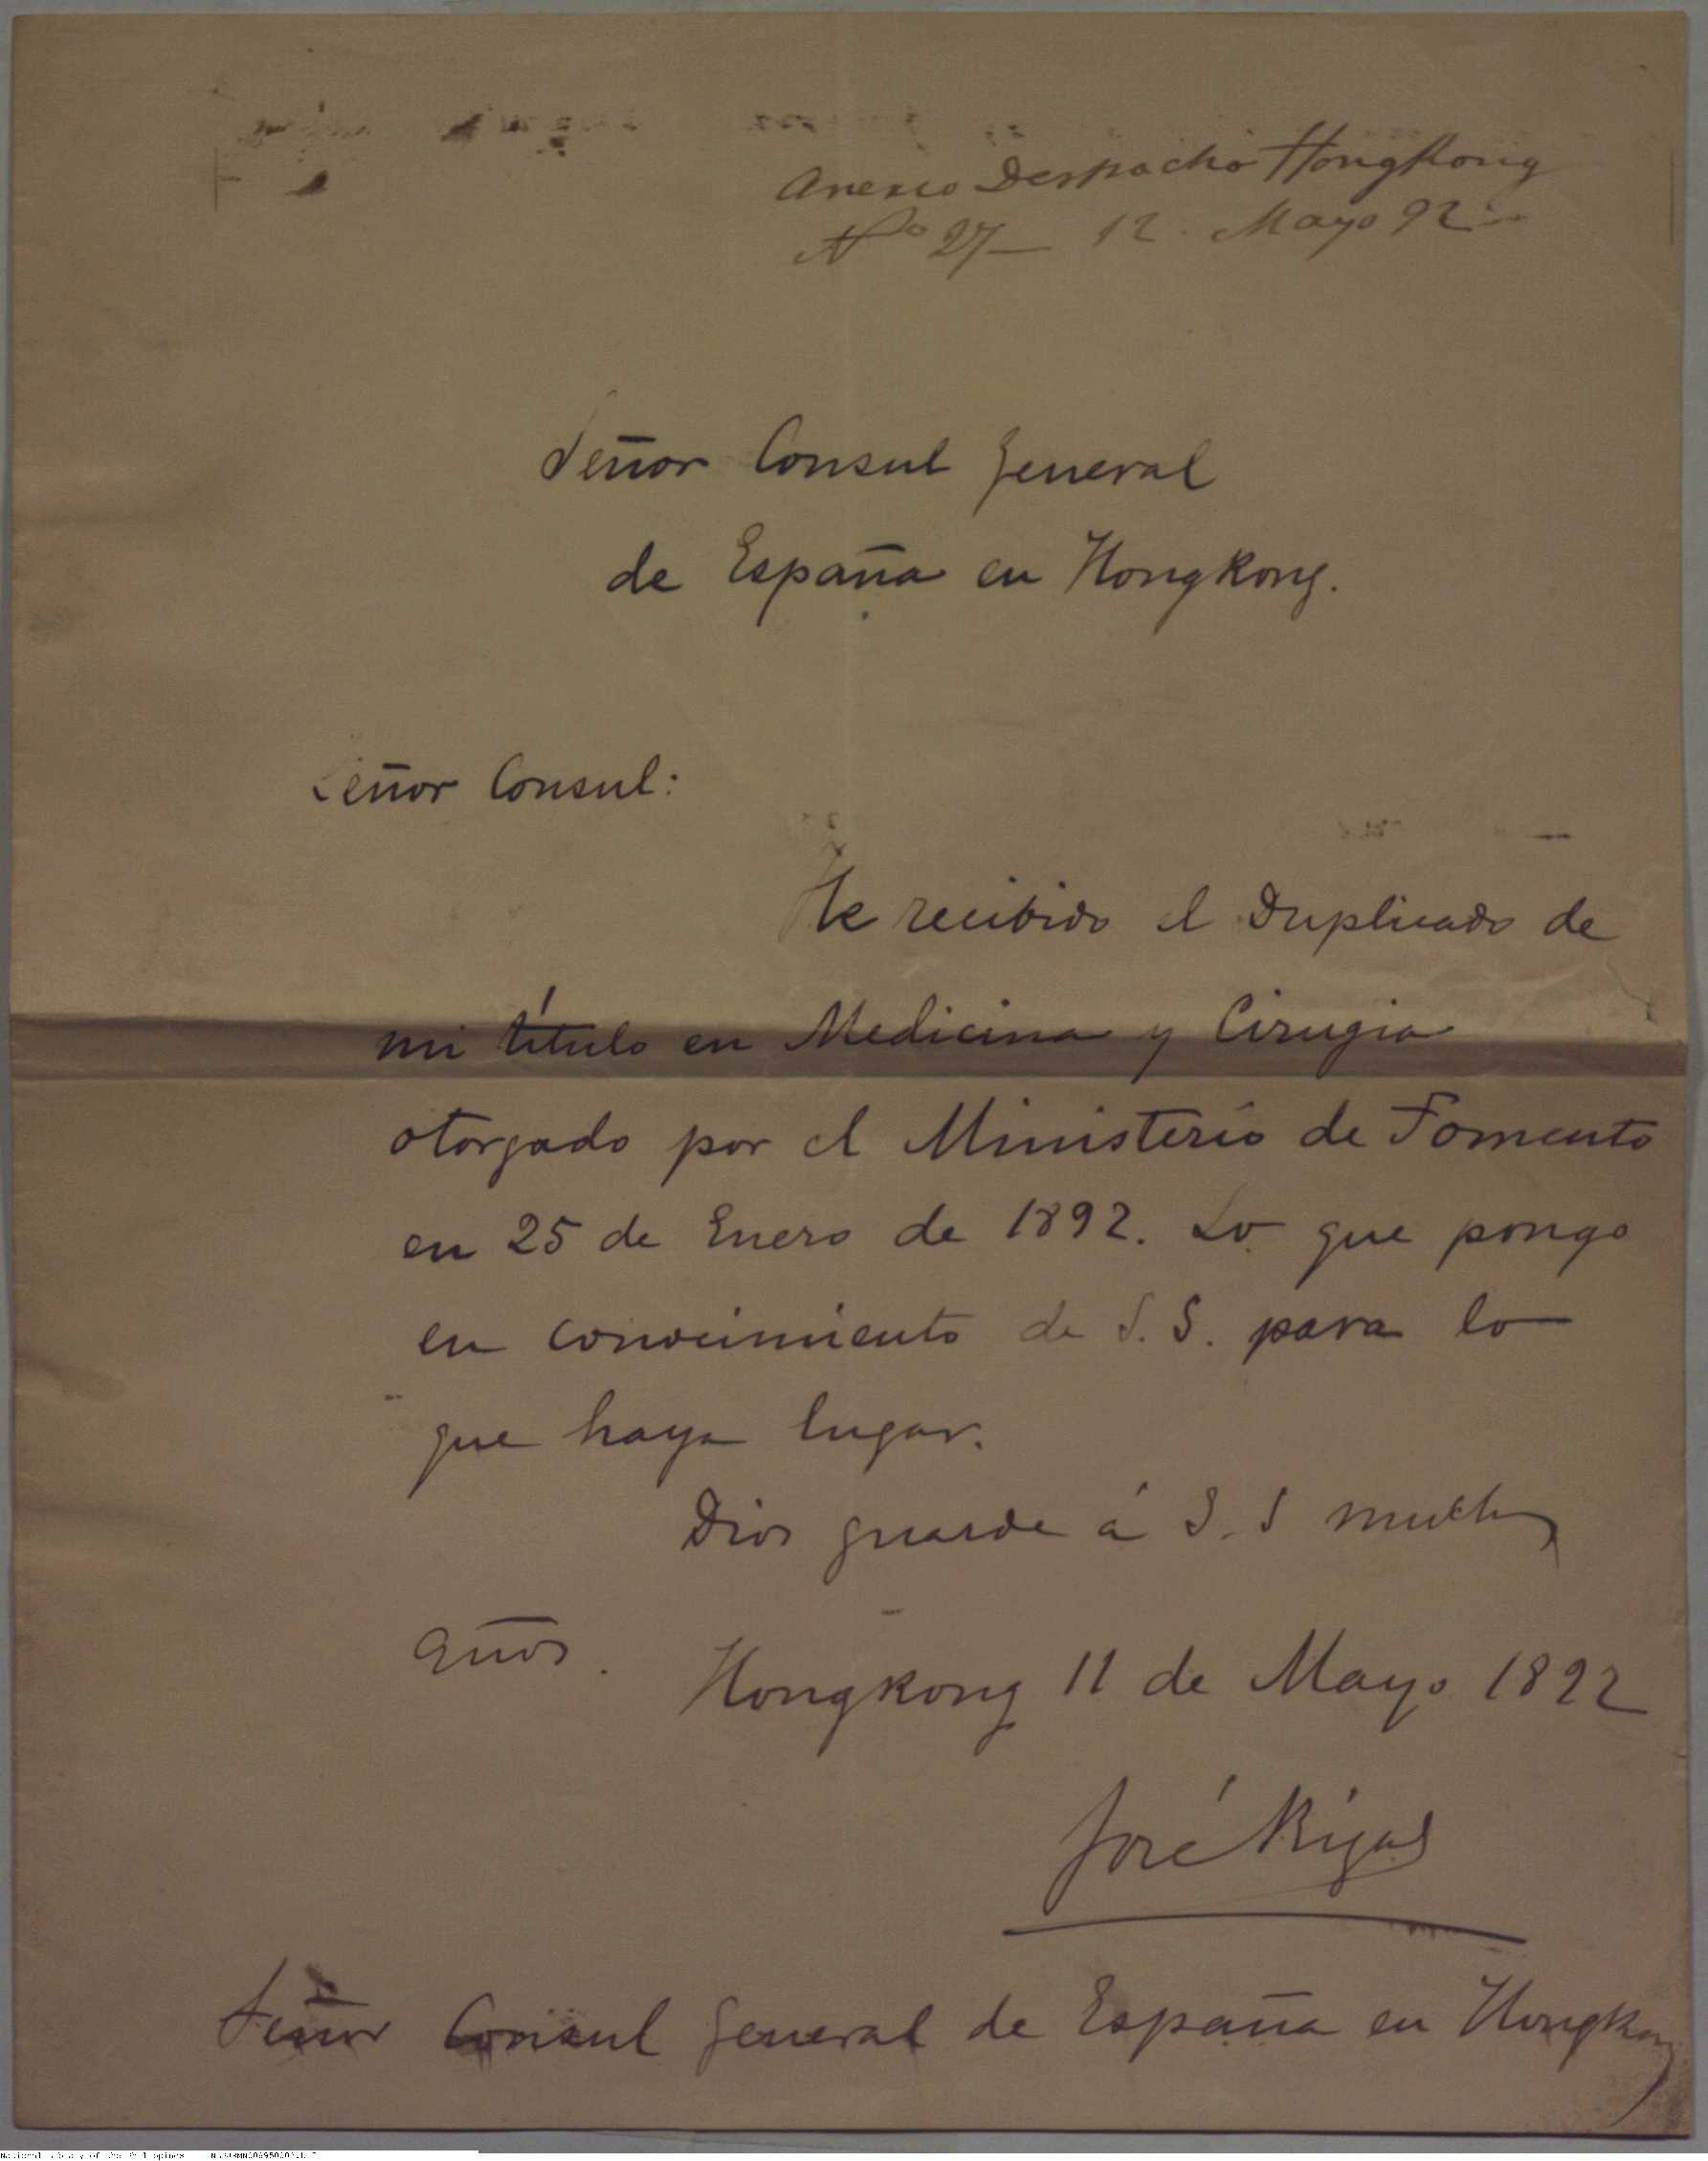 Anexo Despacho HongKong
Nº 27 — 12. Mayo 92
Señor Consul General
de España en HongKong.
Señor Consul:
He recibido el Duplicado de
mi título en Medicina y Cirugia
otorgado por el Ministerio de Fomento
en 25 de Enero de 1892. Lo que pongo
en conocimiento de S. S. para lo
que haya lugar.
Dios guarde á S. S muchos
años.
Hongkong 11 de Mayo 1892
José Rizal
Señor Consul General de España en Hongkong
National Library of the Philippines